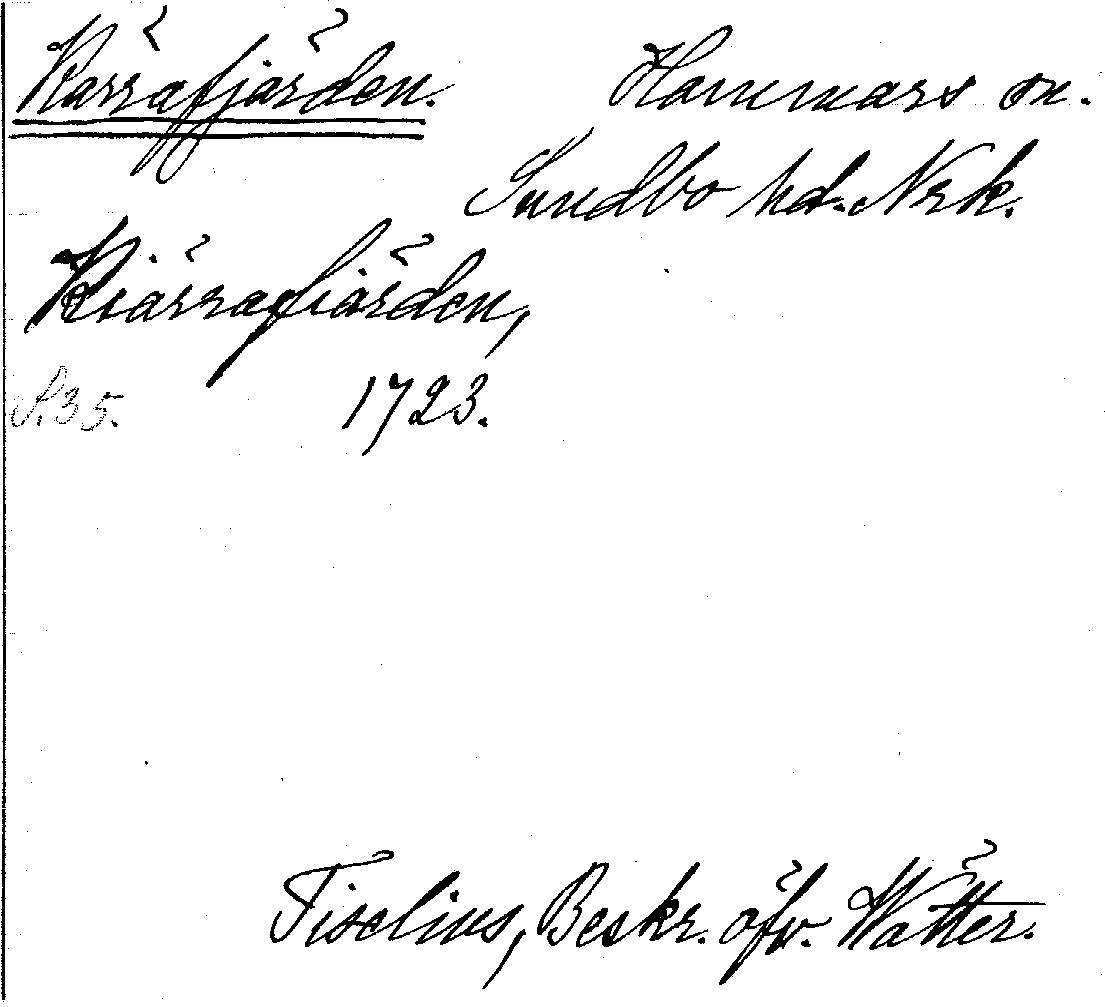 Kärrafjärden. Hammars sn.
Sundbo hd. Nrk.
Kiärrafiärden,
S. 35. 1723.
Tiselius, Beskr. öfv. Wätter.